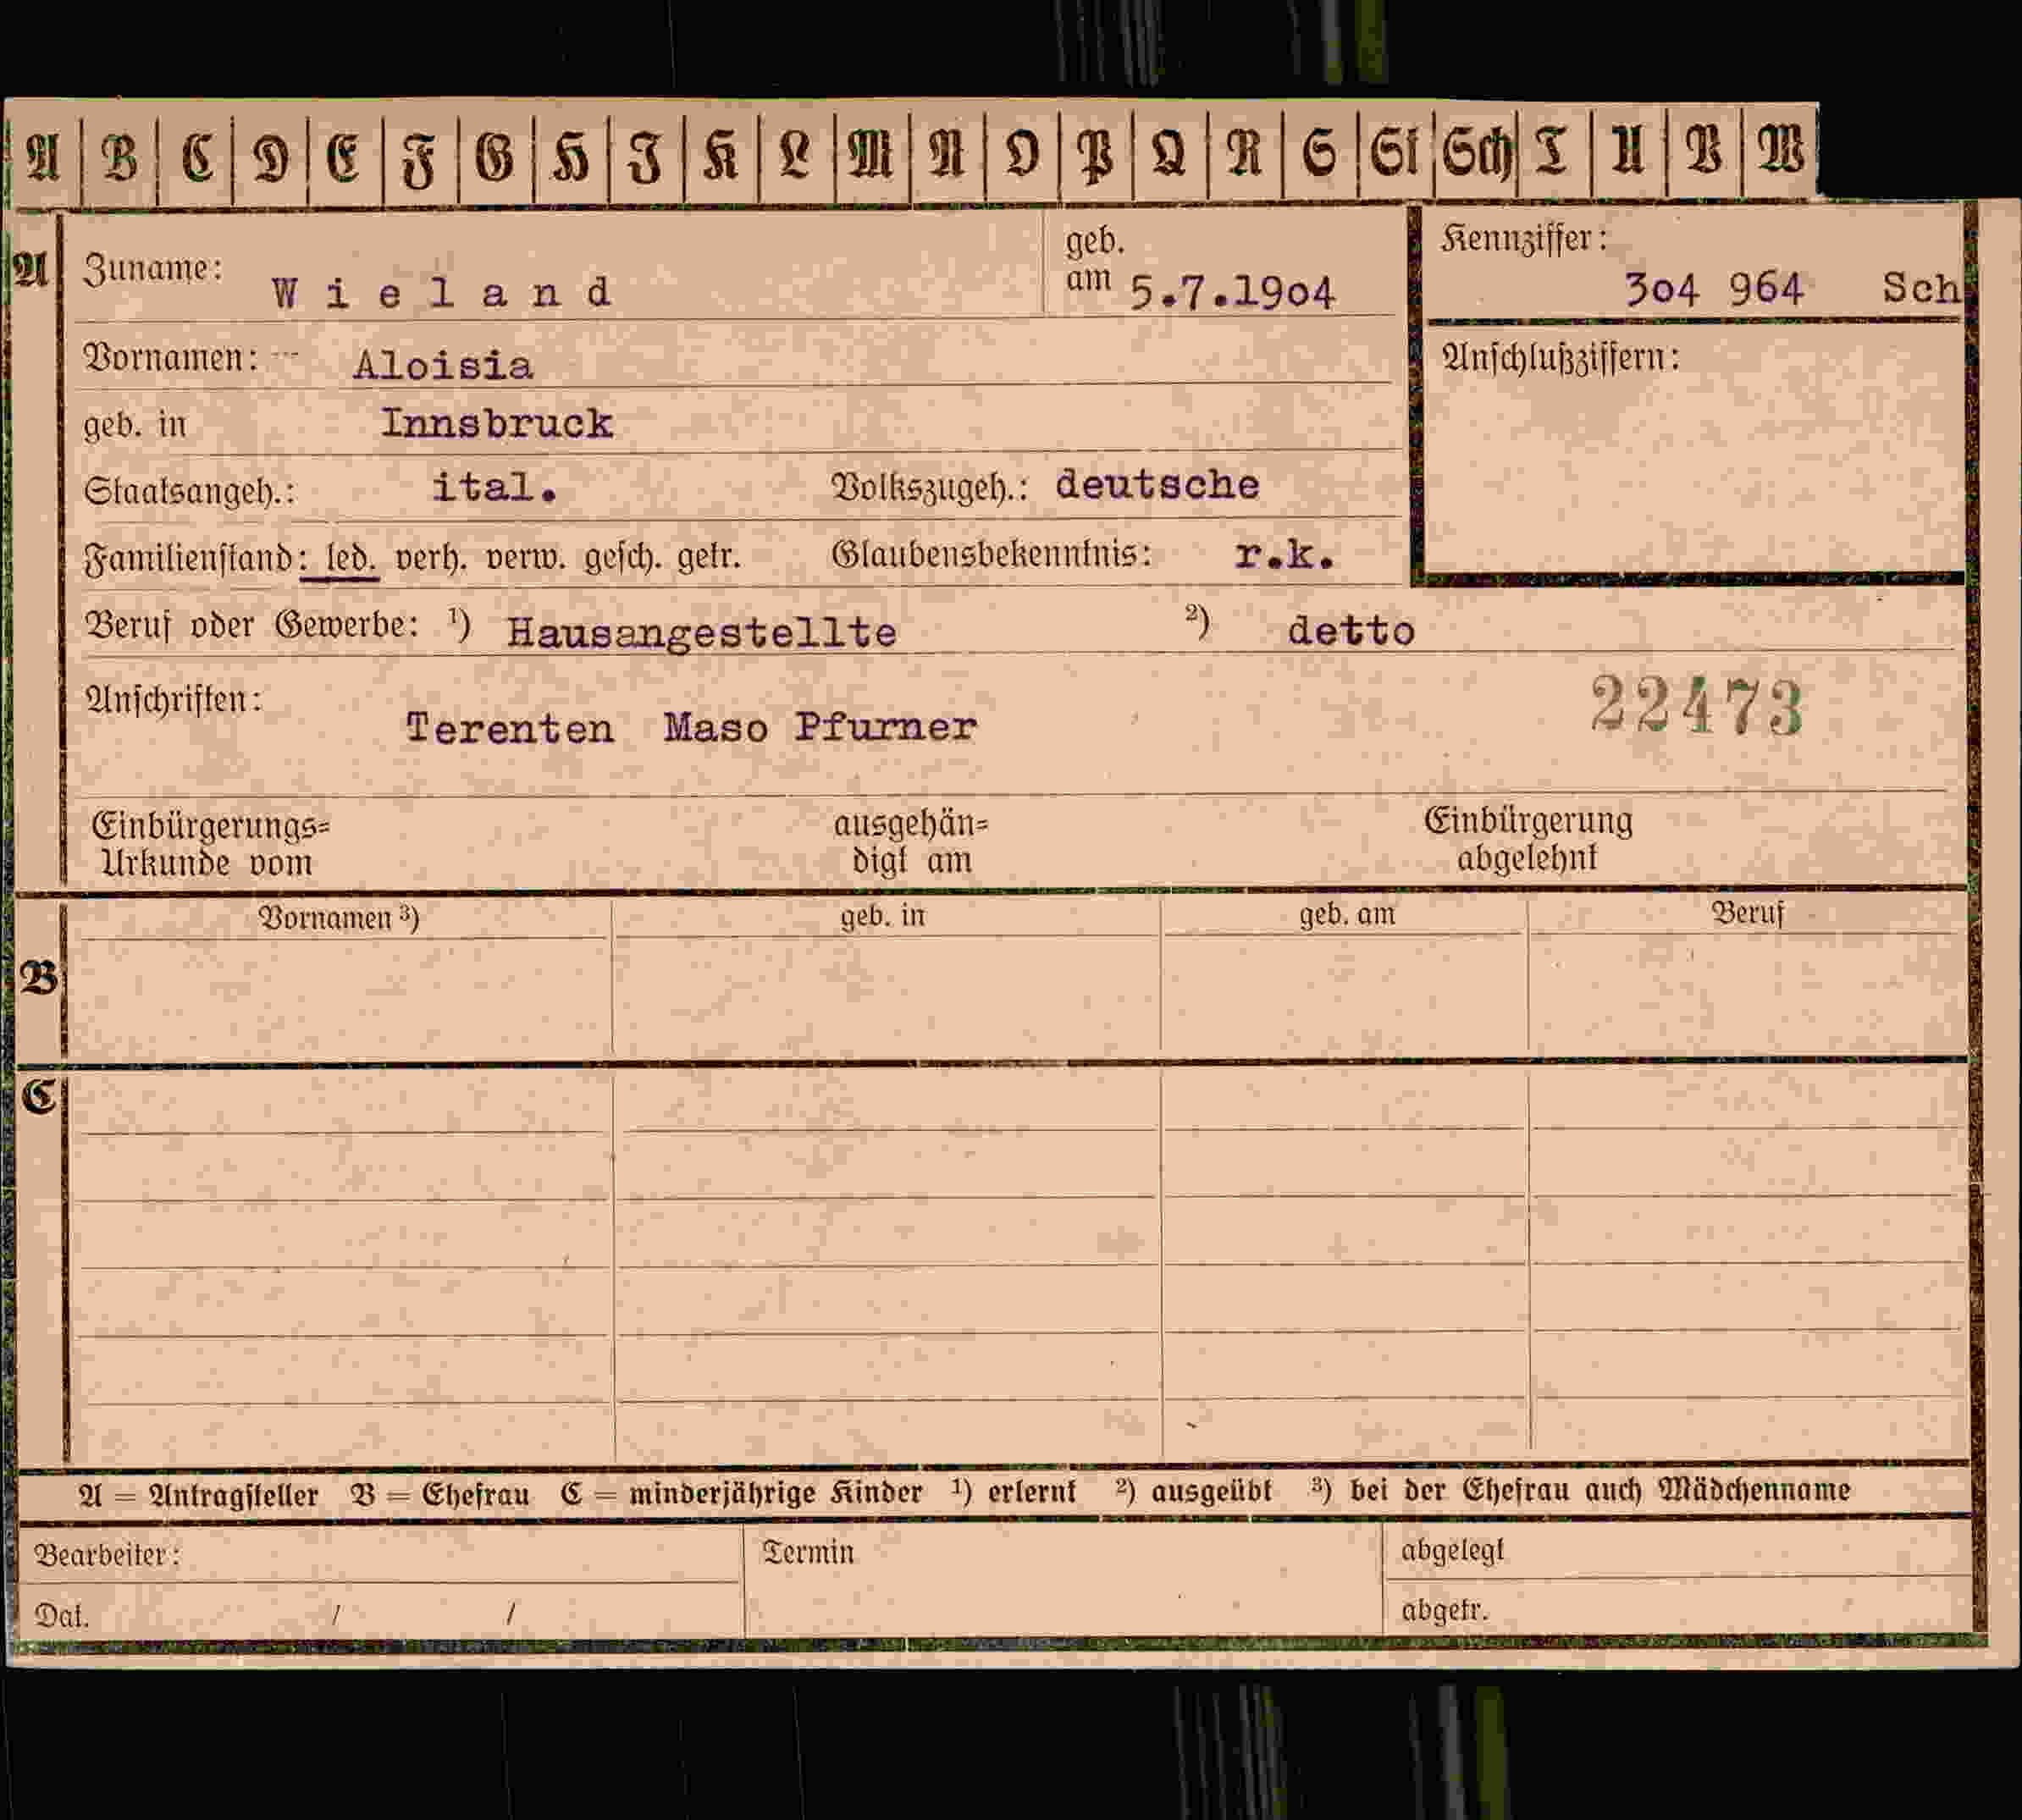 A B C D E F G H I K L M N O P Q R S St Sch T U V W
A Zuname: Wieland geb. am 5.7.1904 Kennziffer: 304 964 Sch
Vornamen: Aloisia Anschlußziffern:
geb. in Innsbruck
Staatsangeh.: ital. Volkszugeh.: deutsche
Familienstand: led. verh. verw. gesch. getr. Glaubensbekenntnis: r.k.
Beruf oder Gewerbe: ¹) Hausangestellte ²) detto
Anschriften: 22473
Terenten Maso Pfurner
Einbürgerungs= ausgehän= Einbürgerung
Urkunde vom digt am abgelehnt
Vornamen ³) geb. in geb. am Beruf
B
C
A = Antragsteller B = Ehefrau C = minderjährige Kinder ¹) erlernt ²) ausgeübt ³) bei der Ehefrau auch Mädchenname
Bearbeiter: Termin abgelegt
Dat. / / abgetr.